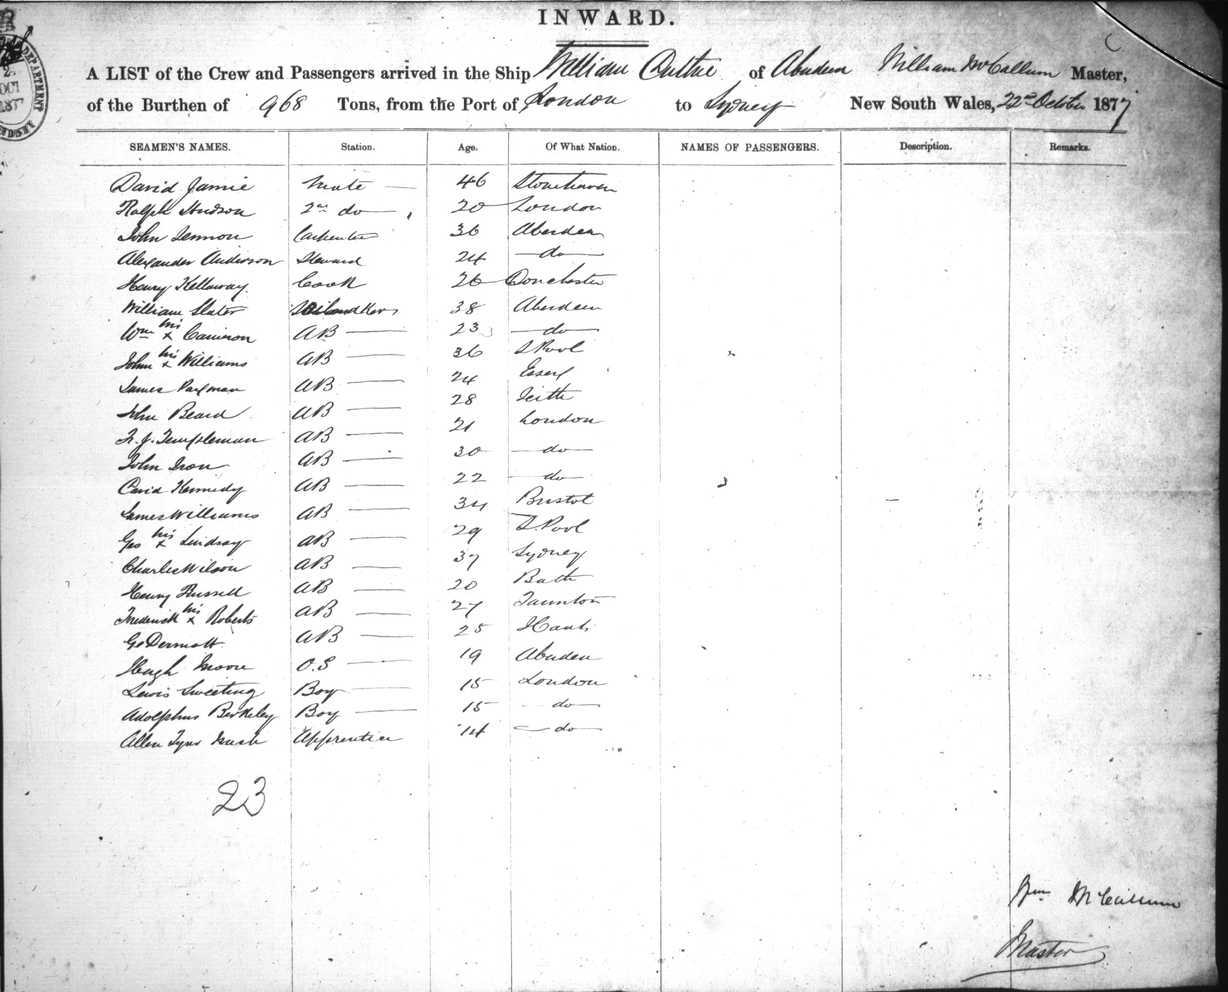 INWARD.
A LIST of the Crew and Passengers arrived in the Ship William Duthie of Aberdeen William McCallum Master,
of the Burthen of 968 Tons, from the Port of London to Sydney New South Wales, 22nd October 1877
SEAMEN'S NAMES. Station. Age. Of What Nation. NAMES OF PASSENGERS. Description. Remarks.
David Jamie Mate — 46 Stonehaven
Ralph Hudson 2nd do — 20 London
John Lennon Carpenter 36 Aberdeen
Alexander Anderson Steward 24 — do —
Henry Kellaway Cook 26 Dorchester
William Slater 38 Aberdeen
Wm his x Cameron AB — 23 — do —
John his x Williams AB — 36 L Pool
James Payman AB — 24 Essex
John Beard AB — 28 Leith
F. J. Templeman AB — 21 London
John Iron AB — 30 — do —
David Kennedy AB — 22 — do —
James Williams AB — 34 Bristol
Geo his x Lindsay AB — 29 L. Pool
Charles Wilson AB — 37 Sydney
Henry Russell AB — 20 Bath
Frederick his x Roberts AB — 27 Taunton
Geo Dermott AB — 25 Hants
Hugh Moore O.S — 19 Aberdeen
Lewis Sweeting Boy — 15 London
Adolphus Berkeley Boy — 15 — do —
Allen Apprentice 14 — do —
23
Wm McCallum
Master